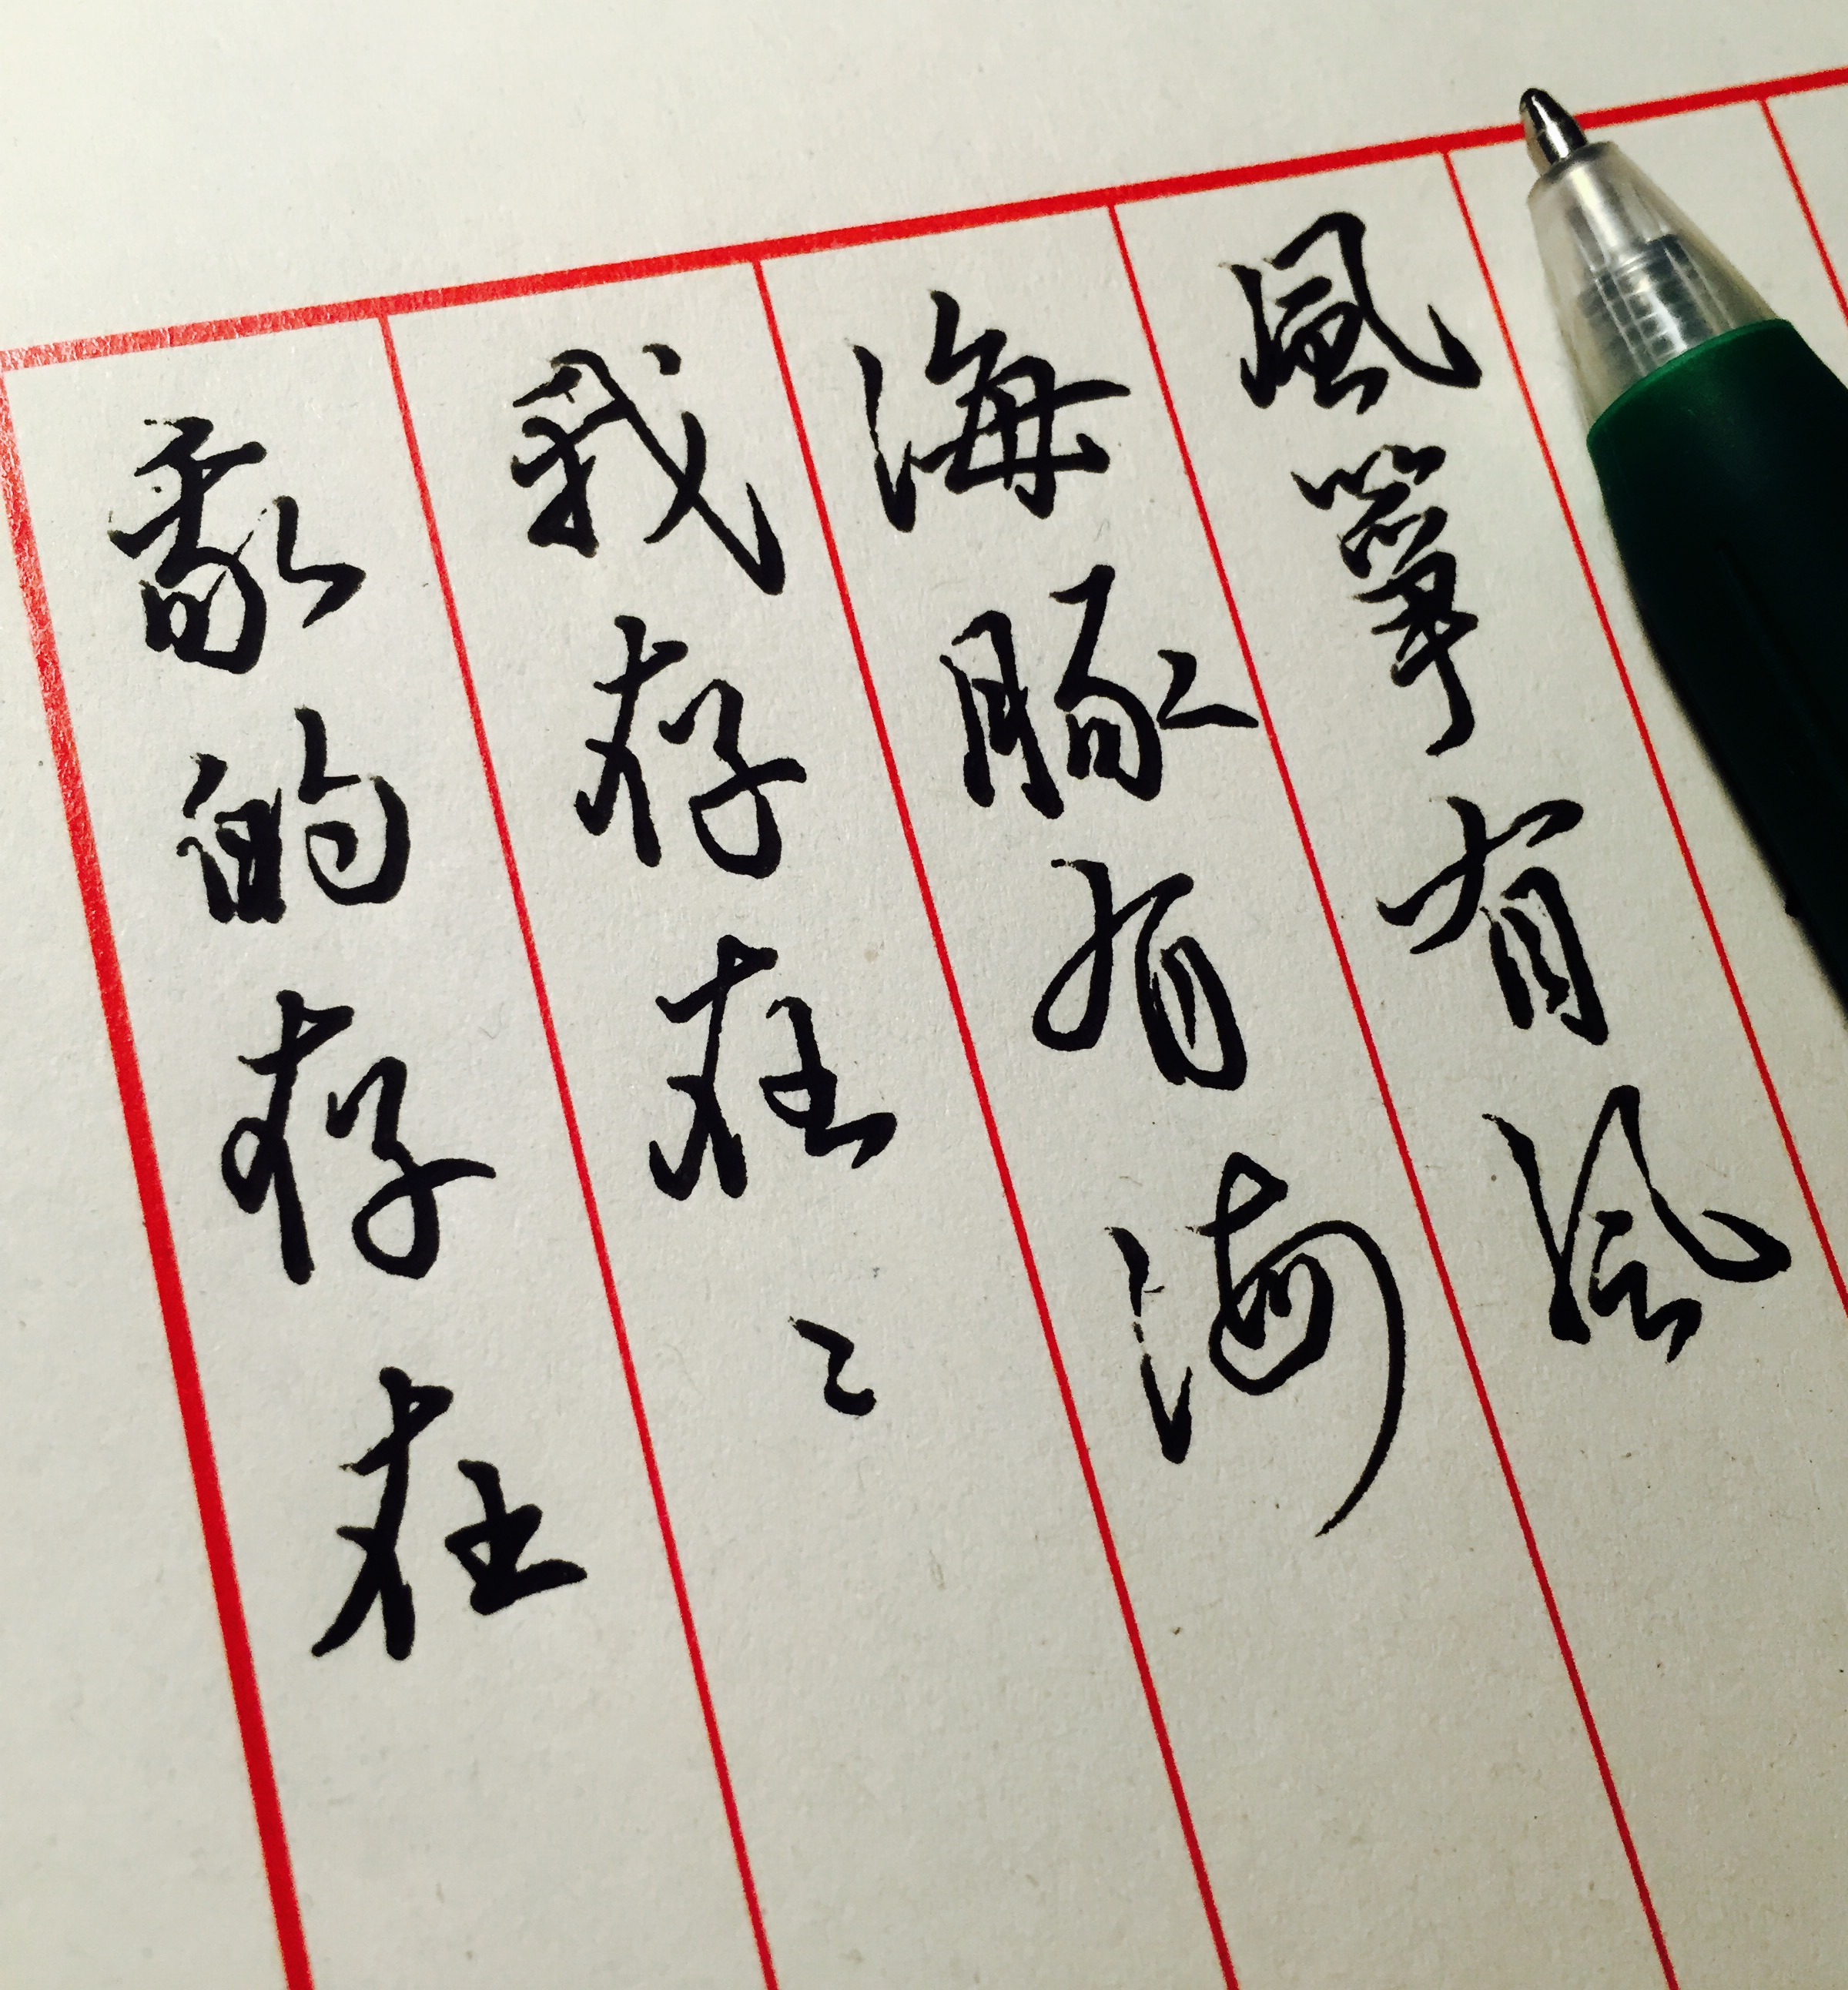 風箏有風
海豚有海
我存在〻
我的存在